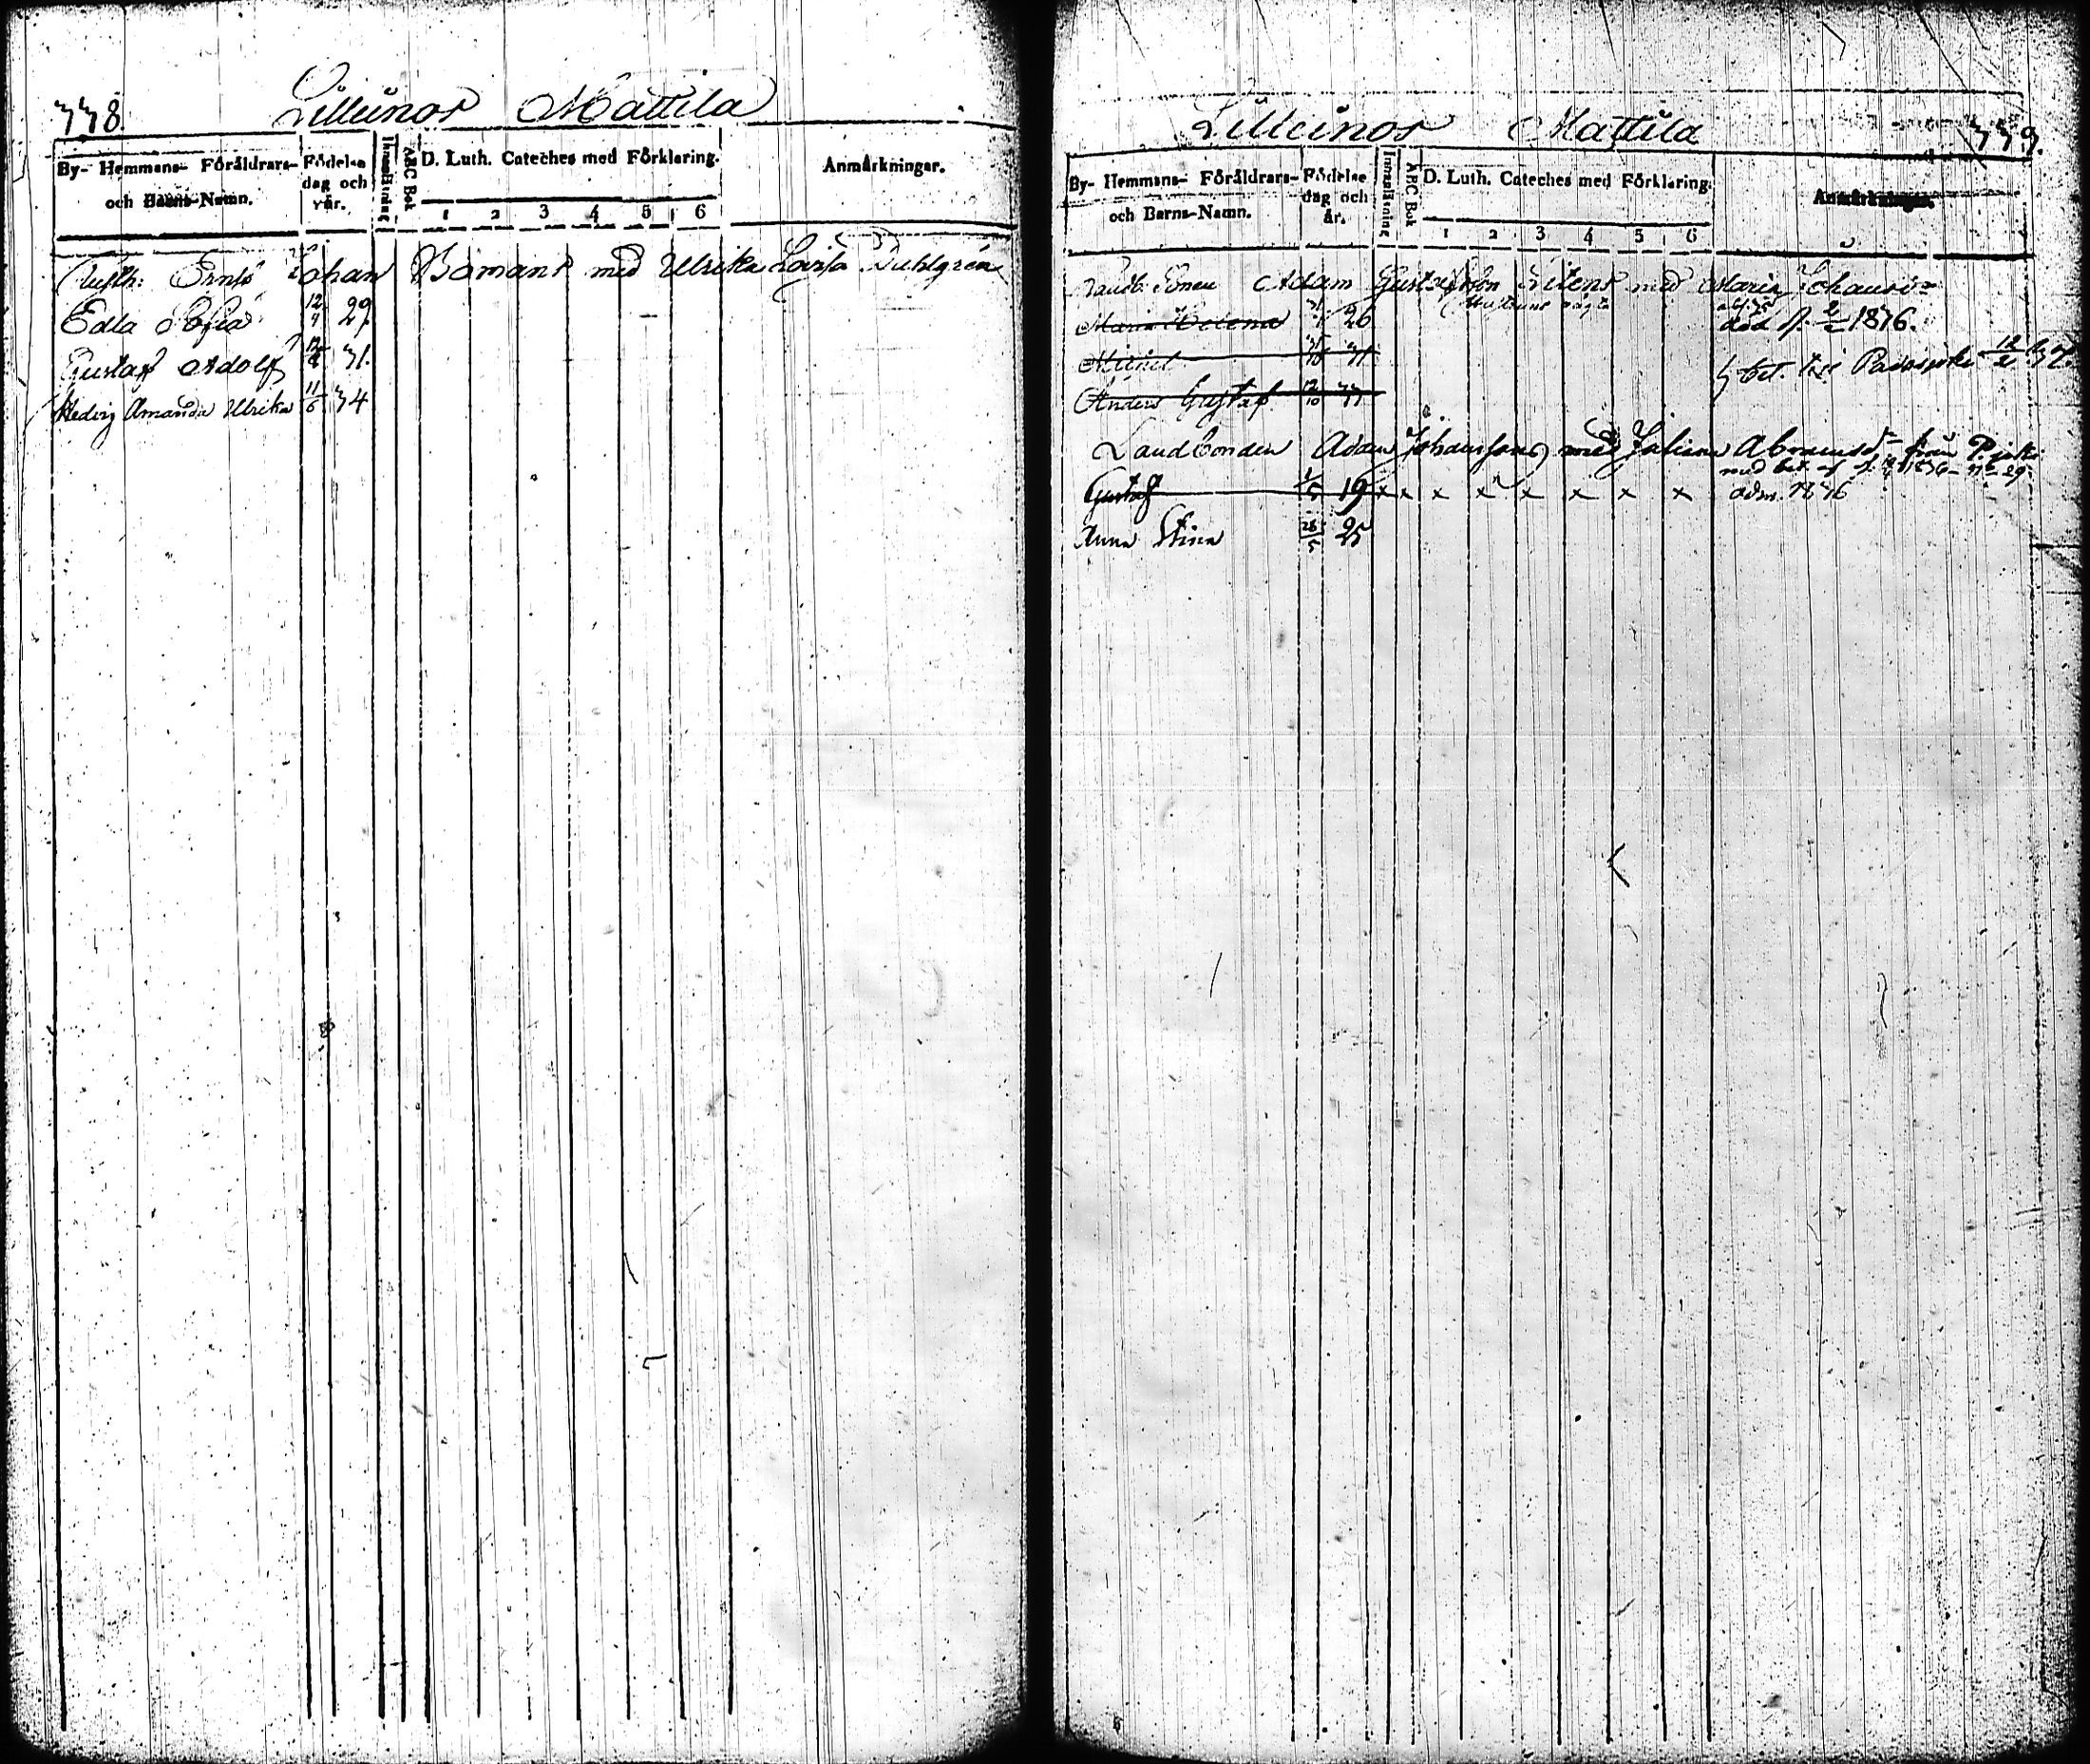 778.
Lilleinois Mattila
By- Hemmans- Föräldrars-
och Barns-Namn.
Födelse
dag och
år.
Innanläsning
ABC Bok
D. Luth. Cateches med Förklaring.
1 2 3 4 5 6
Anmärkningar.
Rusth: Ernst Johan Bomans med Ulrika Lovisa Duhlgrén
Edla Sofia 12/4 29.
Gustaf Adolf 31.
Hedvig Amanda Ulrika 11/6 34
Lilleinois Mattila
779.
By- Hemmans- Föräldrars-
och Barns-Namn.
Födelse
dag och
år.
Innanläsning
ABC Bok
D. Luth. Cateches med Förklaring.
1 2 3 4 5 6
Anmärkningar.
Adam Gustafsson Litens med Maria Johansd:r
Maria Helena 26 död 1836.
Michel 31 bet. till Padasjoki
Anders Gustaf 12/10 33
Landbonden Adam Johanssons med Juliana Abramsd:r från P.joki
med bet. af 1836 No 29
Gustaf 1/5 19 x x x x x x x x adm. 1836
Anna Stina 26/5 25